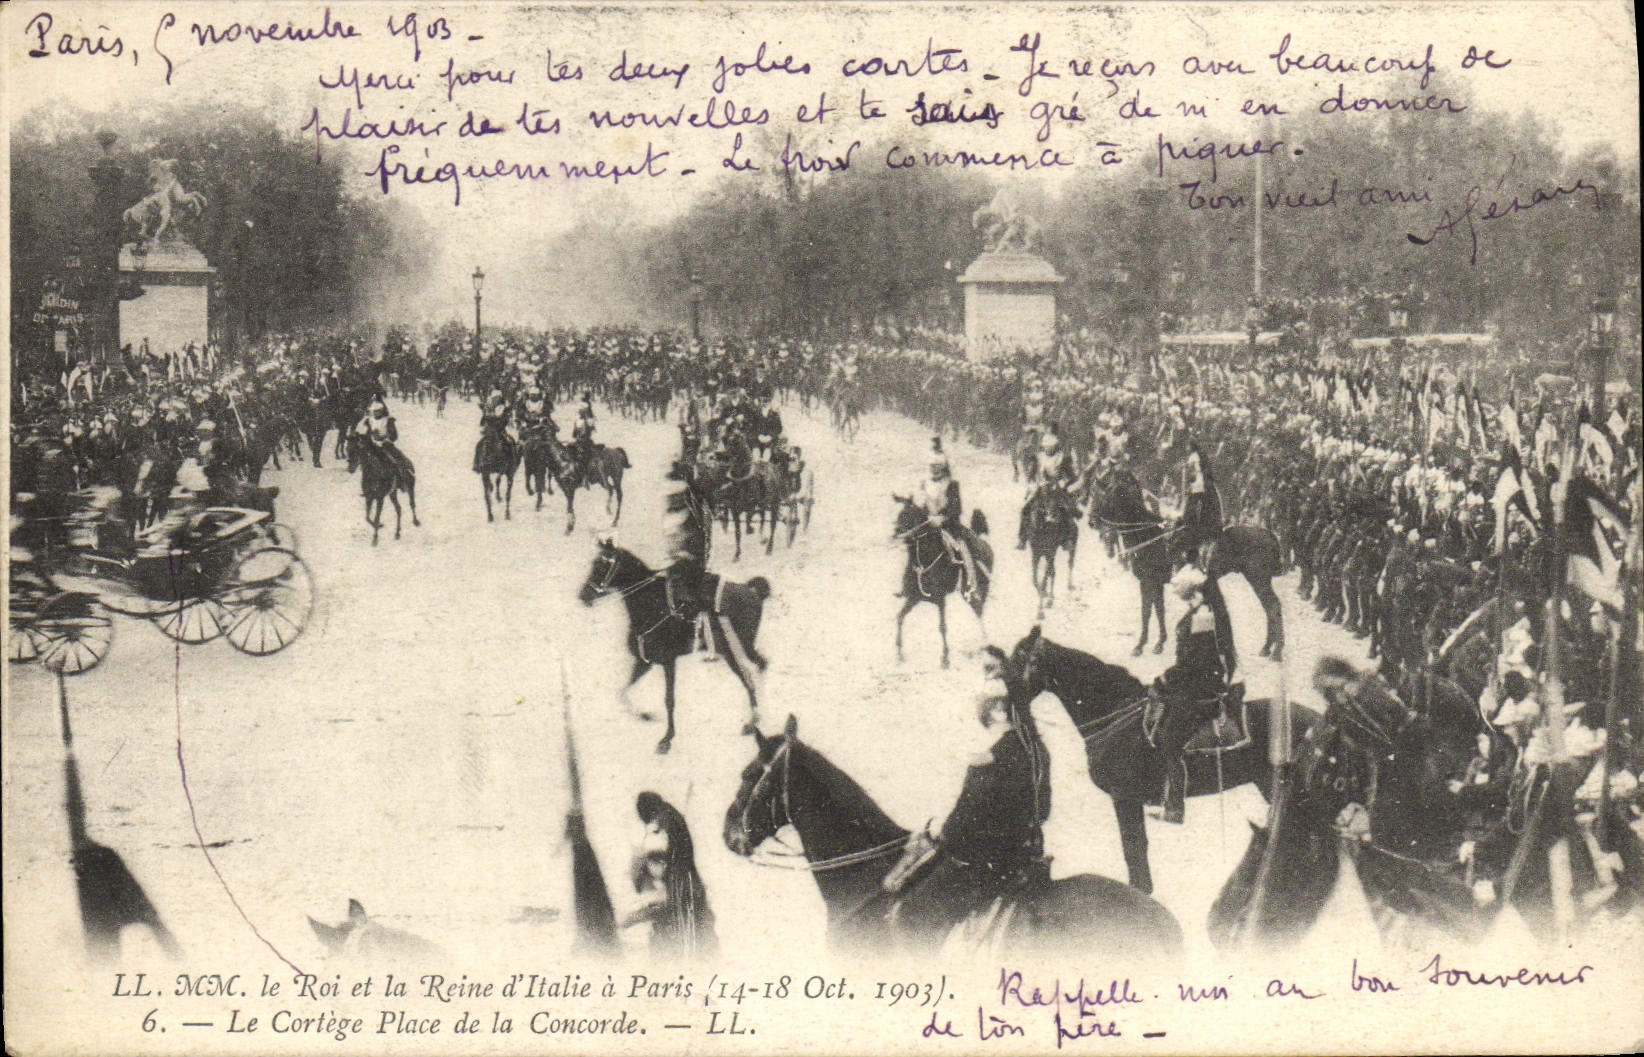 Paris, 5 novembre 1903 -
Merci pour tes deux jolies cartes - Je reçois avec beaucoup de
plaisir de tes nouvelles et te sais gré de m'en donner
fréquemment - Le froid commence à piquer.
Ton vieil ami
JARDIN
DE PARIS
LL. MM. le Roi et la Reine d'Italie à Paris (14-18 Oct. 1903).
6. — Le Cortège Place de la Concorde. — LL.
Rappelle-moi au bon souvenir
de ton père -